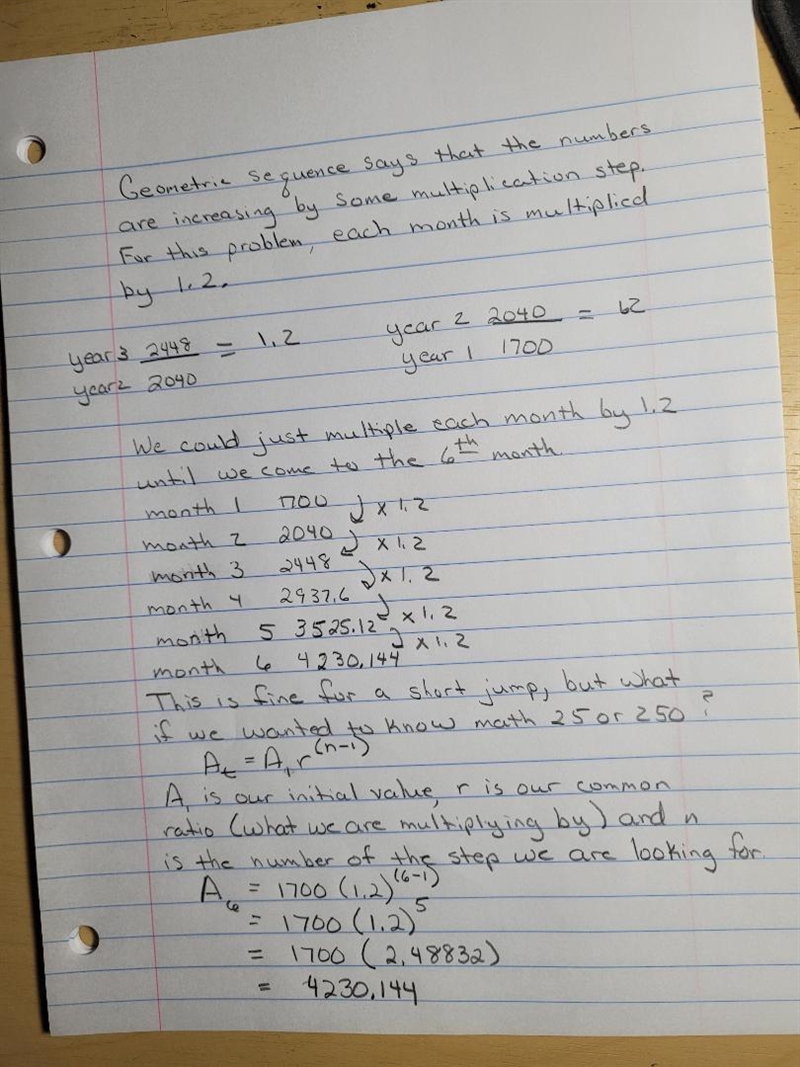 Geometric sequence says that the numbers
are increasing by some multiplication step.
For this problem, each month is multiplied
by 1.2.
year 3 2448 = 1.2 year 2 2040 = 1.2
year 2 2040 year 1 1700
We could just multiple each month by 1.2
until we come to the 6th month.
month 1 1700 x 1.2
month 2 2040 x 1.2
month 3 2448 x 1.2
month 4 2937.6 x 1.2
month 5 3525.12 x 1.2
month 6 4230.144
This is fine for a short jump, but what
if we wanted to know math 25 or 250?
A_t = A_1 r^(n-1)
A_1 is our initial value, r is our common
ratio (what we are multiplying by) and n
is the number of the step we are looking for.
A_6 = 1700 (1.2)^(6-1)
= 1700 (1.2)^5
= 1700 (2.48832)
= 4230.144